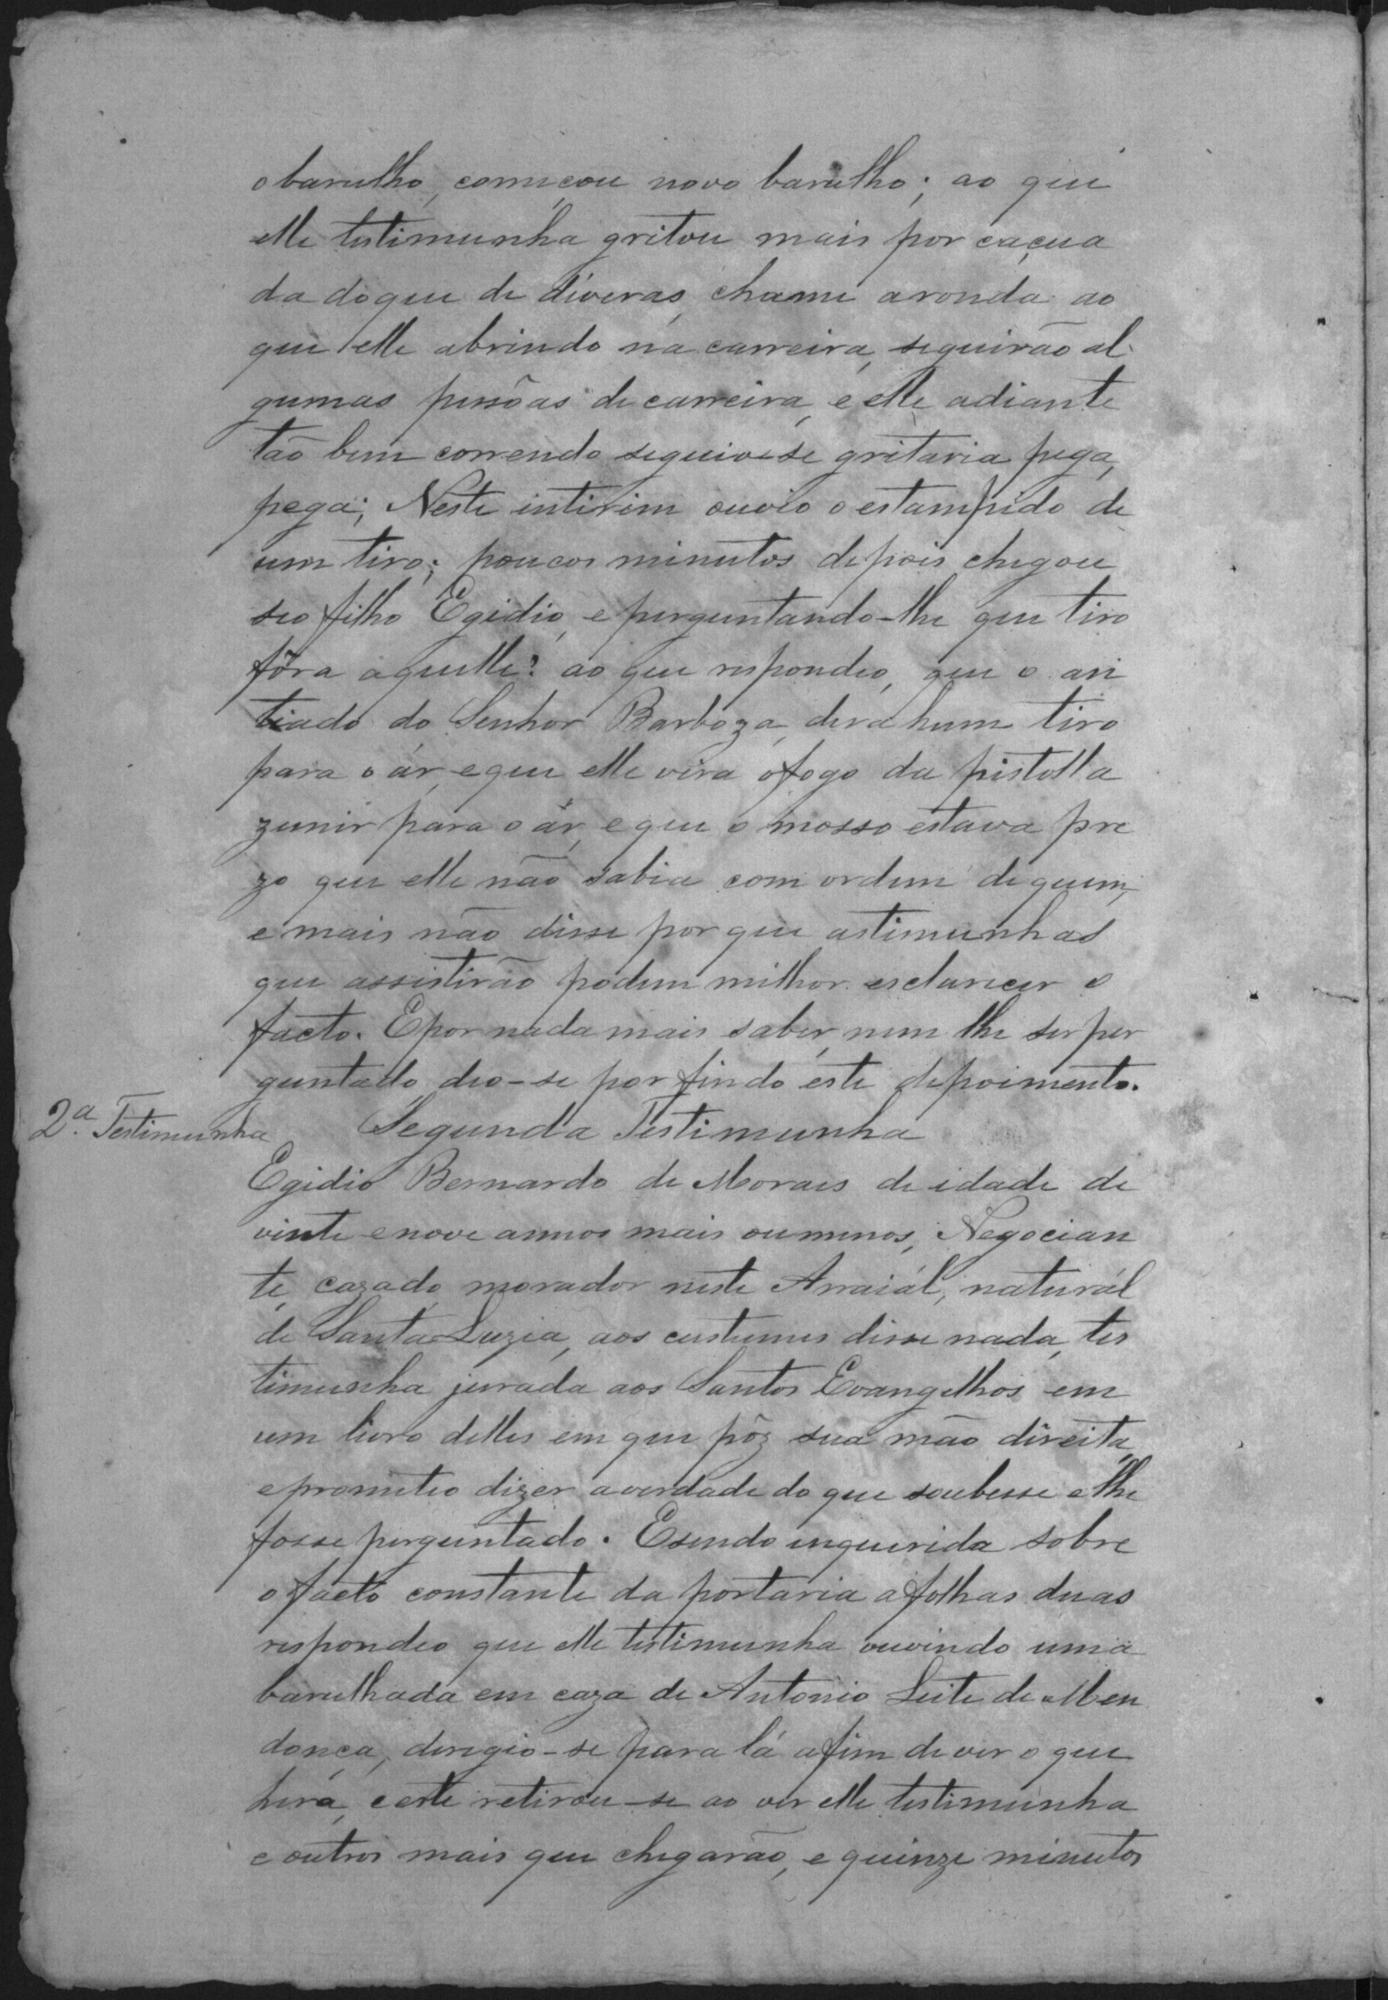 o barulho, comiçou novo barulho; ao que
elle testimunha gritou mais por caçua
da doque de diveras, chame a ronda ao
que elle abrindo na carreira, seguirão al
gumas pessôas de carreira, e elle adiante
tão bem correndo seguiose gritaria pega,
pega; Neste intirim ouvio o estampido de
um tiro; poucos minutos depois chegou
seo filho Egidio, e perguntando-lhe que tiro
fôra aquelle? ao que respondeo, que o an
tiado do Senhor Barboza, dera hum tiro
para o ár, e que elle vira o fogo da pistolla
zunir para o ár, e que o mosso estava pre
zo que elle não sabia com ordem de quem,
e mais não disse por que astimunhas
que assistirão podem milhor esclarecer o
facto. E por nada mais saber, nem lhe ser per
guntado deo-se por findo este depoimento.
2.ª Testimunha Segunda Testimunha
Egidio Bernardo de Moraes de idade de
vinte e nove annos mais oumenos, Negocian
te, cazado, morador neste Arraiál, naturál
de Santa Luzia, aos custumes disse nada, tes
timunha jurada aos Santos Evangelhos em
um livro delles em que pôz sua mão direita,
e prometeo dizer a verdade do que soubesse e lhe
fosse perguntado. E sendo inquerida sobre
o facto constante da portaria a folhas duas
respondeo que elle testimunha ouvindo uma
barulhada em caza de Antonio Leite de Men
donça, dirigio-se para lá afim de ver o que
hera, e este retirou-se ao ver elle testimunha
e outros mais que chegarão, e quinze minutos